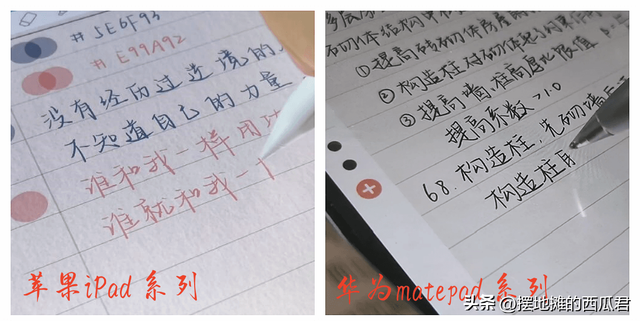 #5E6F93
#E99A92
没有经历过逆境的
不知道自己的力量
谁和我一样用功
谁就和我一
苹果iPad系列
①提高砖砌体房屋
②构造柱对砌体
③提高墙、柱高厚比限值
提高系数>1.0
68.构造柱,先砌墙后
构造柱
华为matepad系列
头条@摆地摊的西瓜君